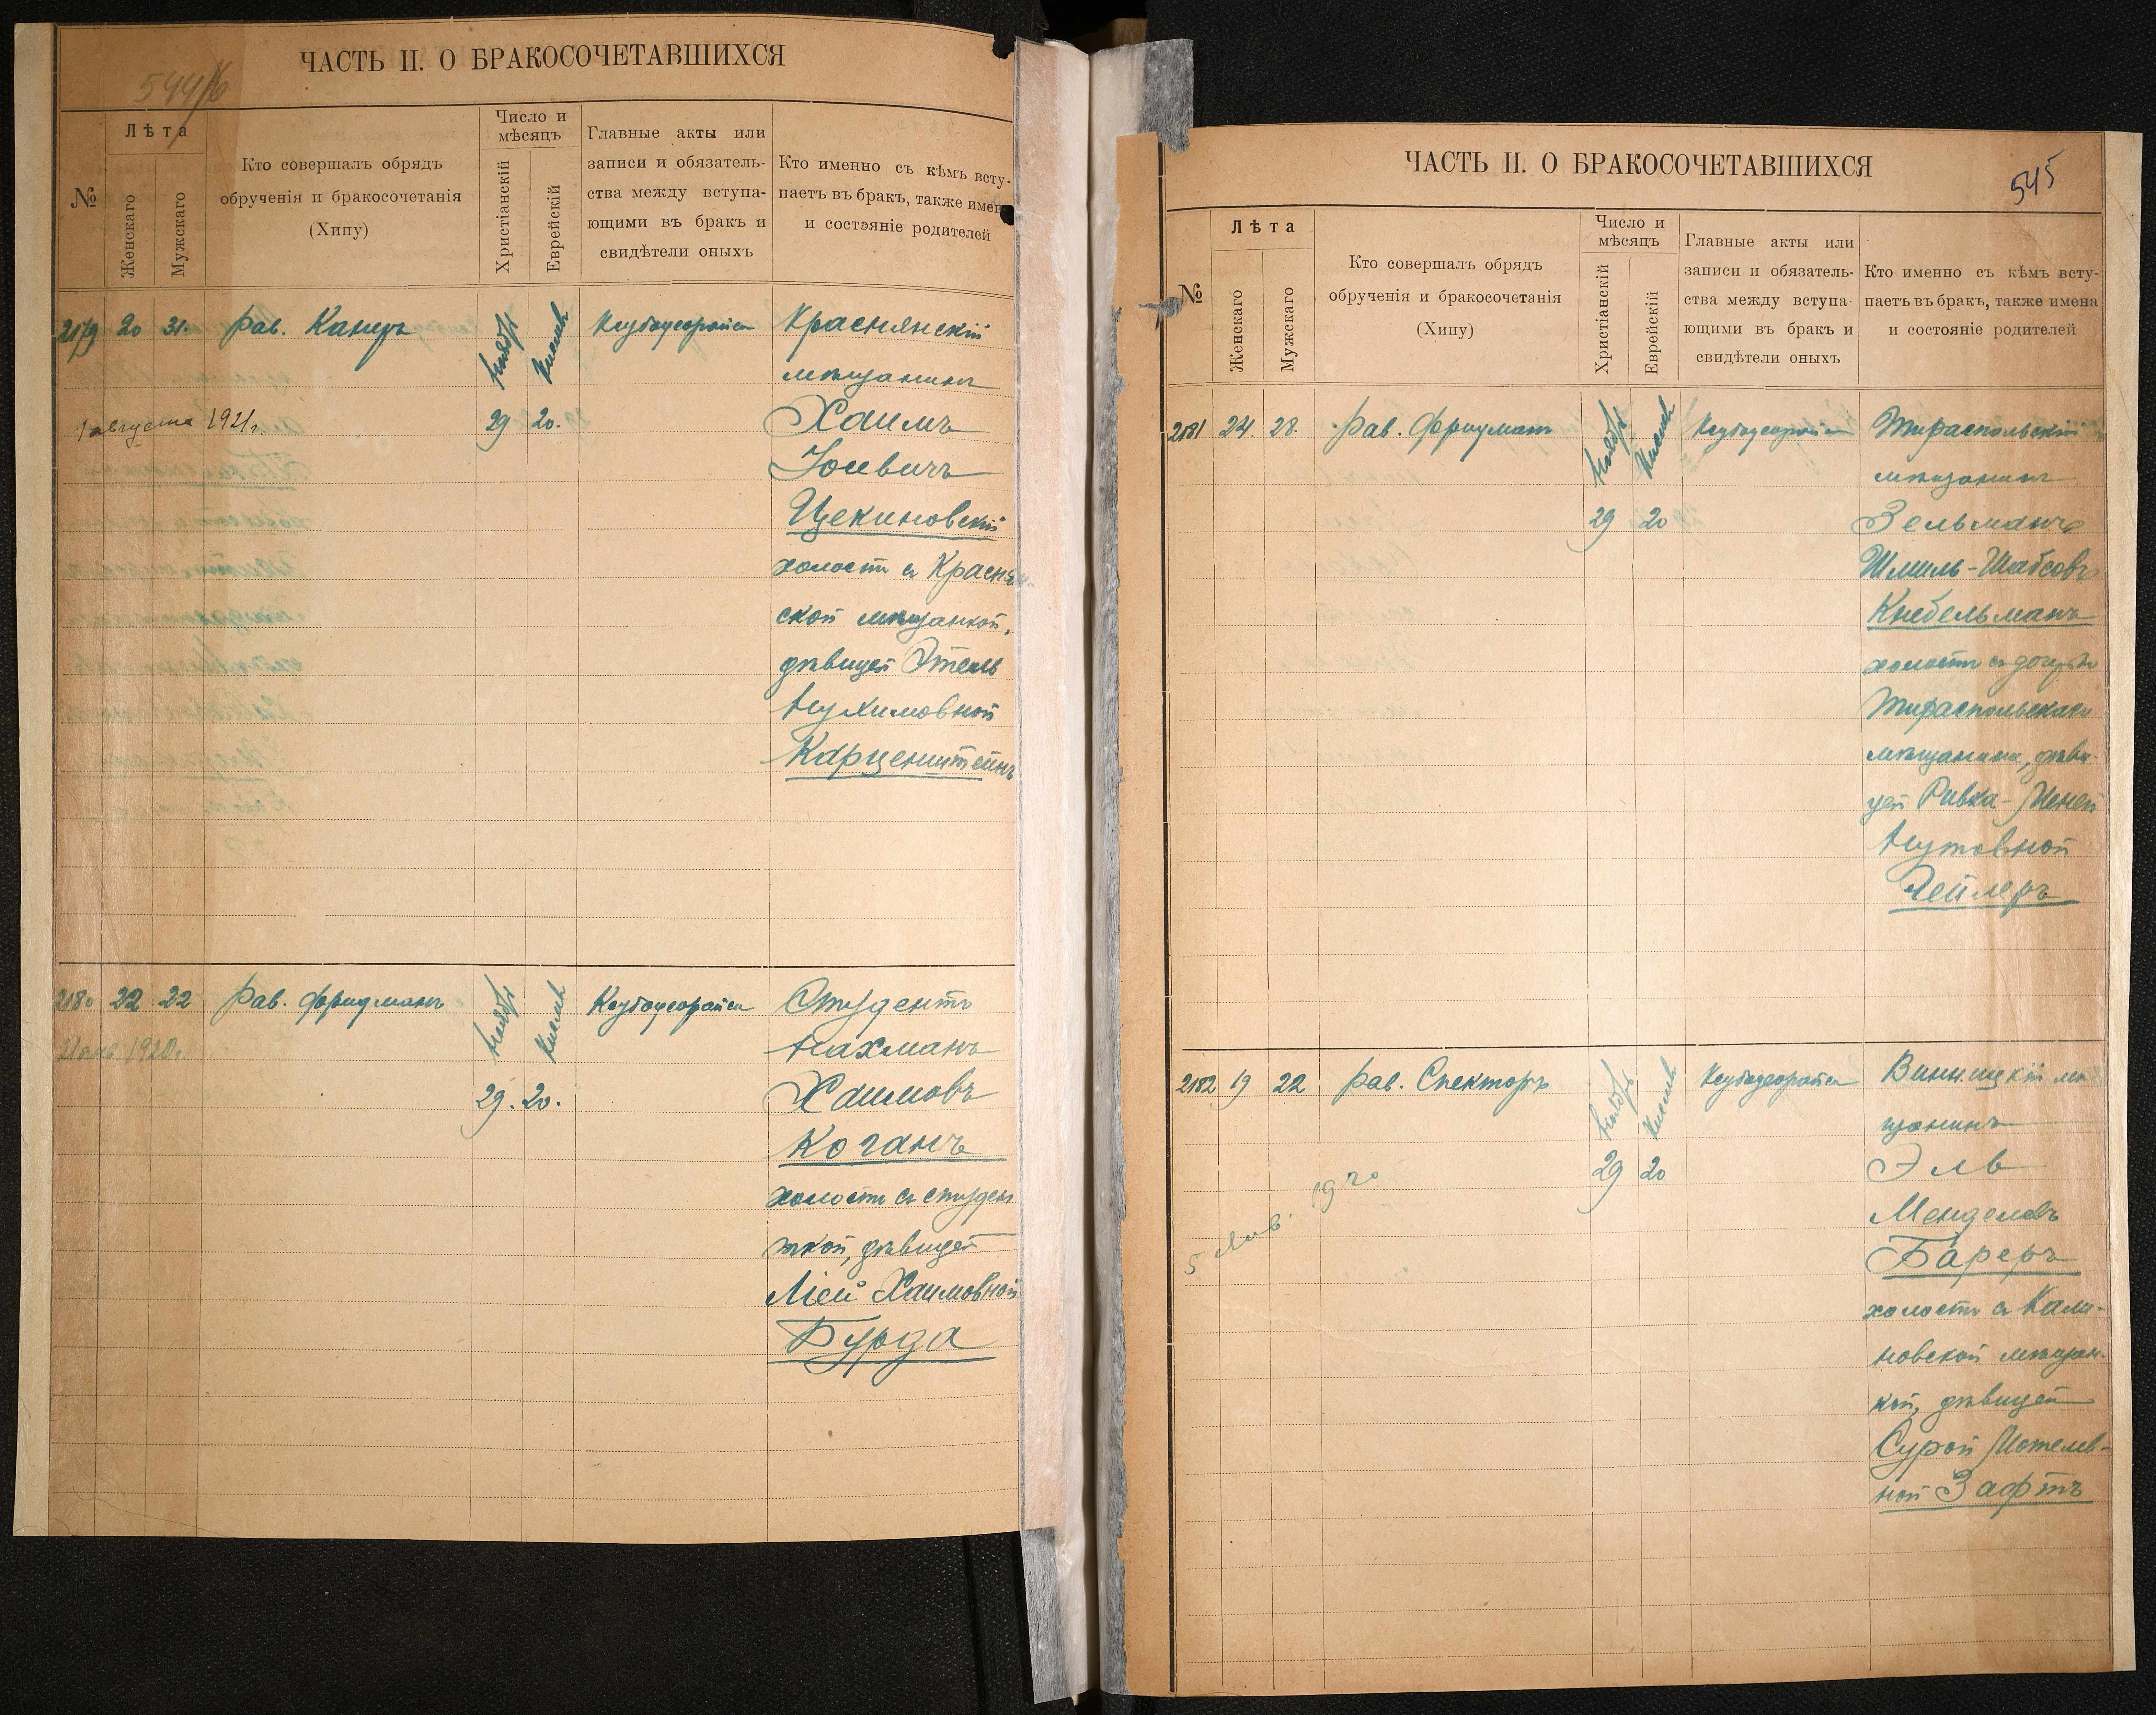 ЧАСТЬ II. О БРАКОСОЧЕТАВШИХСЯ
№
Лѣта
Женскаго
Мужскаго
Кто совершалъ обрядъ
обрученія и бракосочетанія
(Хипу)
Число и
мѣсяцъ
Христіанскій
Еврейскій
Главные акты или
записи и обязатель-
ства между вступа-
ющими въ бракъ и
свидѣтели оныхъ
Кто именно съ кѣмъ всту-
паетъ въ бракъ, также имен
и состэяніе родителей
2179 20 31. Рав. Канеръ
Ноябрь Кислевъ
29 20.
1 августа 1921 г.
Краснянскій
мѣщанинъ
Хаимъ
Іосевичъ
Цекиновскій
холостъ съ Краснян-
ской мѣщанкой,
дѣвицей Этель
Нухимовной
Карценштейнъ
2180 22 22 Рав. Фридманъ
Ноябрь Кислевъ
29. 20.
1920 г.
Студентъ
Нахманъ
Хаимовъ
Коганъ
холостъ съ студен
ткой, дѣвицей
Ліей Хаимовной
Бурда
ЧАСТЬ II. О БРАКОСОЧЕТАВШИХСЯ
545
№
Лѣта
Женскаго
Мужскаго
Кто совершалъ обрядъ
обрученія и бракосочетанія
(Хипу)
Число и
мѣсяцъ
Христіанскій
Еврейскій
Главные акты или
записи и обязатель-
ства между вступа-
ющими въ бракъ и
свидѣтели оныхъ
Кто именно съ кѣмъ всту-
паетъ въ бракъ, также имена
и состояніе родителей
2181 24. 28. Рав. Фридманъ
Ноябрь Кислевъ
29 20
Тираспольскій
мѣщанинъ
Зельманъ
Шмиль-Шабсовъ
Кнебельманъ
холостъ съ дочерью
Тираспольскаго
мѣщанина, дѣви-
цей Ривка-
Нутовной
Гейлеръ
2182 19 22 Рав. Спекторъ
Ноябрь Кислевъ
29 20
5 Янв. 1920
Винницкій мѣ
щанинъ
Эль
Менделевъ
Бареръ
холостъ съ Кали-
новской мѣщан-
кой, дѣвицей
Сурой Мотелев-
ной Зафтъ